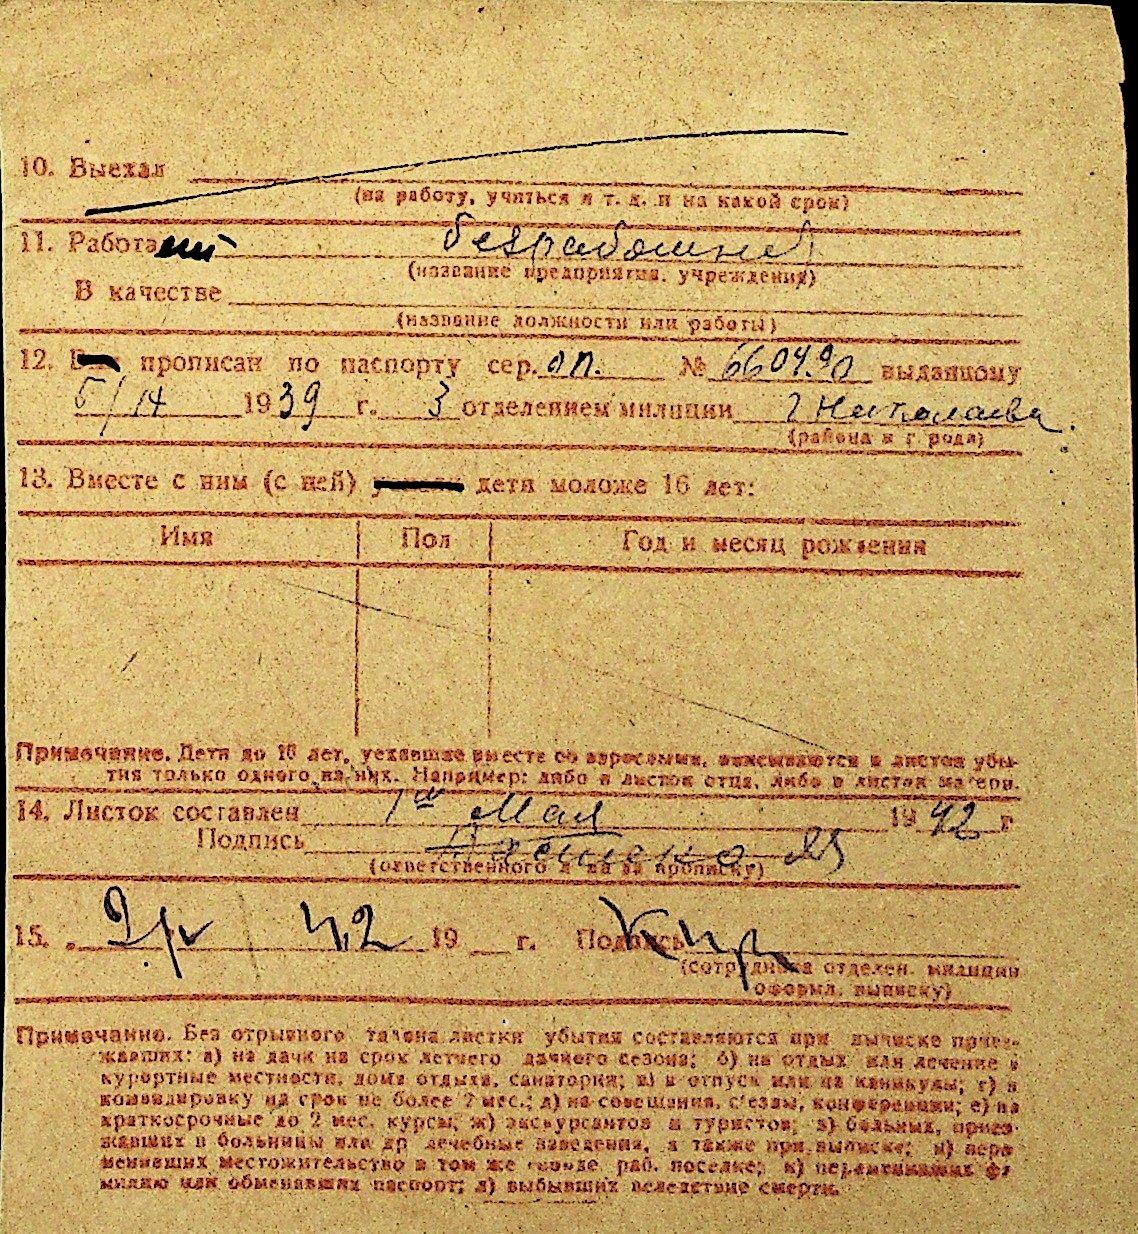 10. Выехал
(на работу, учиться и т. д. и на какой срок)
11. Работа безработный
(название предприятия, учреждения)
В качестве
(название должности или работы)
12. прописан по паспорту сер. оп. № 660490 выданному
5/14 1939 г. 3 отделением милиции г Николаева.
(района и города)
13. Вместе с ним (с ней) дети моложе 16 лет:
Имя Пол Год и месяц рождения
Примечание. Дети до 16 лет, уехавшие вместе со взрослыми, вписываются в листок убы-
тия только одного из них. Например: либо в листок отца, либо в листок матери.
14. Листок составлен 1го Мая 1942 г
Подпись
(ответственного за прописку)
15. 42 19 г. Подпись
(сотрудника отделен. милиции
оформл. выписку)
Примечание. Без отрывного талона листки убытия составляются при выписке приез-
жавших: а) на дачи на срок летнего дачного сезона; б) на отдых или лечение в
курортные местности, дома отдыха, санатории; в) в отпуск или на каникулы; г) в
командировку на срок не более 2 мес.; д) на совещания, с'езды, конференции; е) на
краткосрочные до 2 мес. курсы; ж) экскурсантов и туристов; з) больных, приез-
жавших в больницы или др лечебные заведения, а также при выписке; и) пере
менивших местожительство в том же городе, раб. поселке; к) переменивших фа
милию или обменявших паспорт; л) выбывших вследствие смерти.